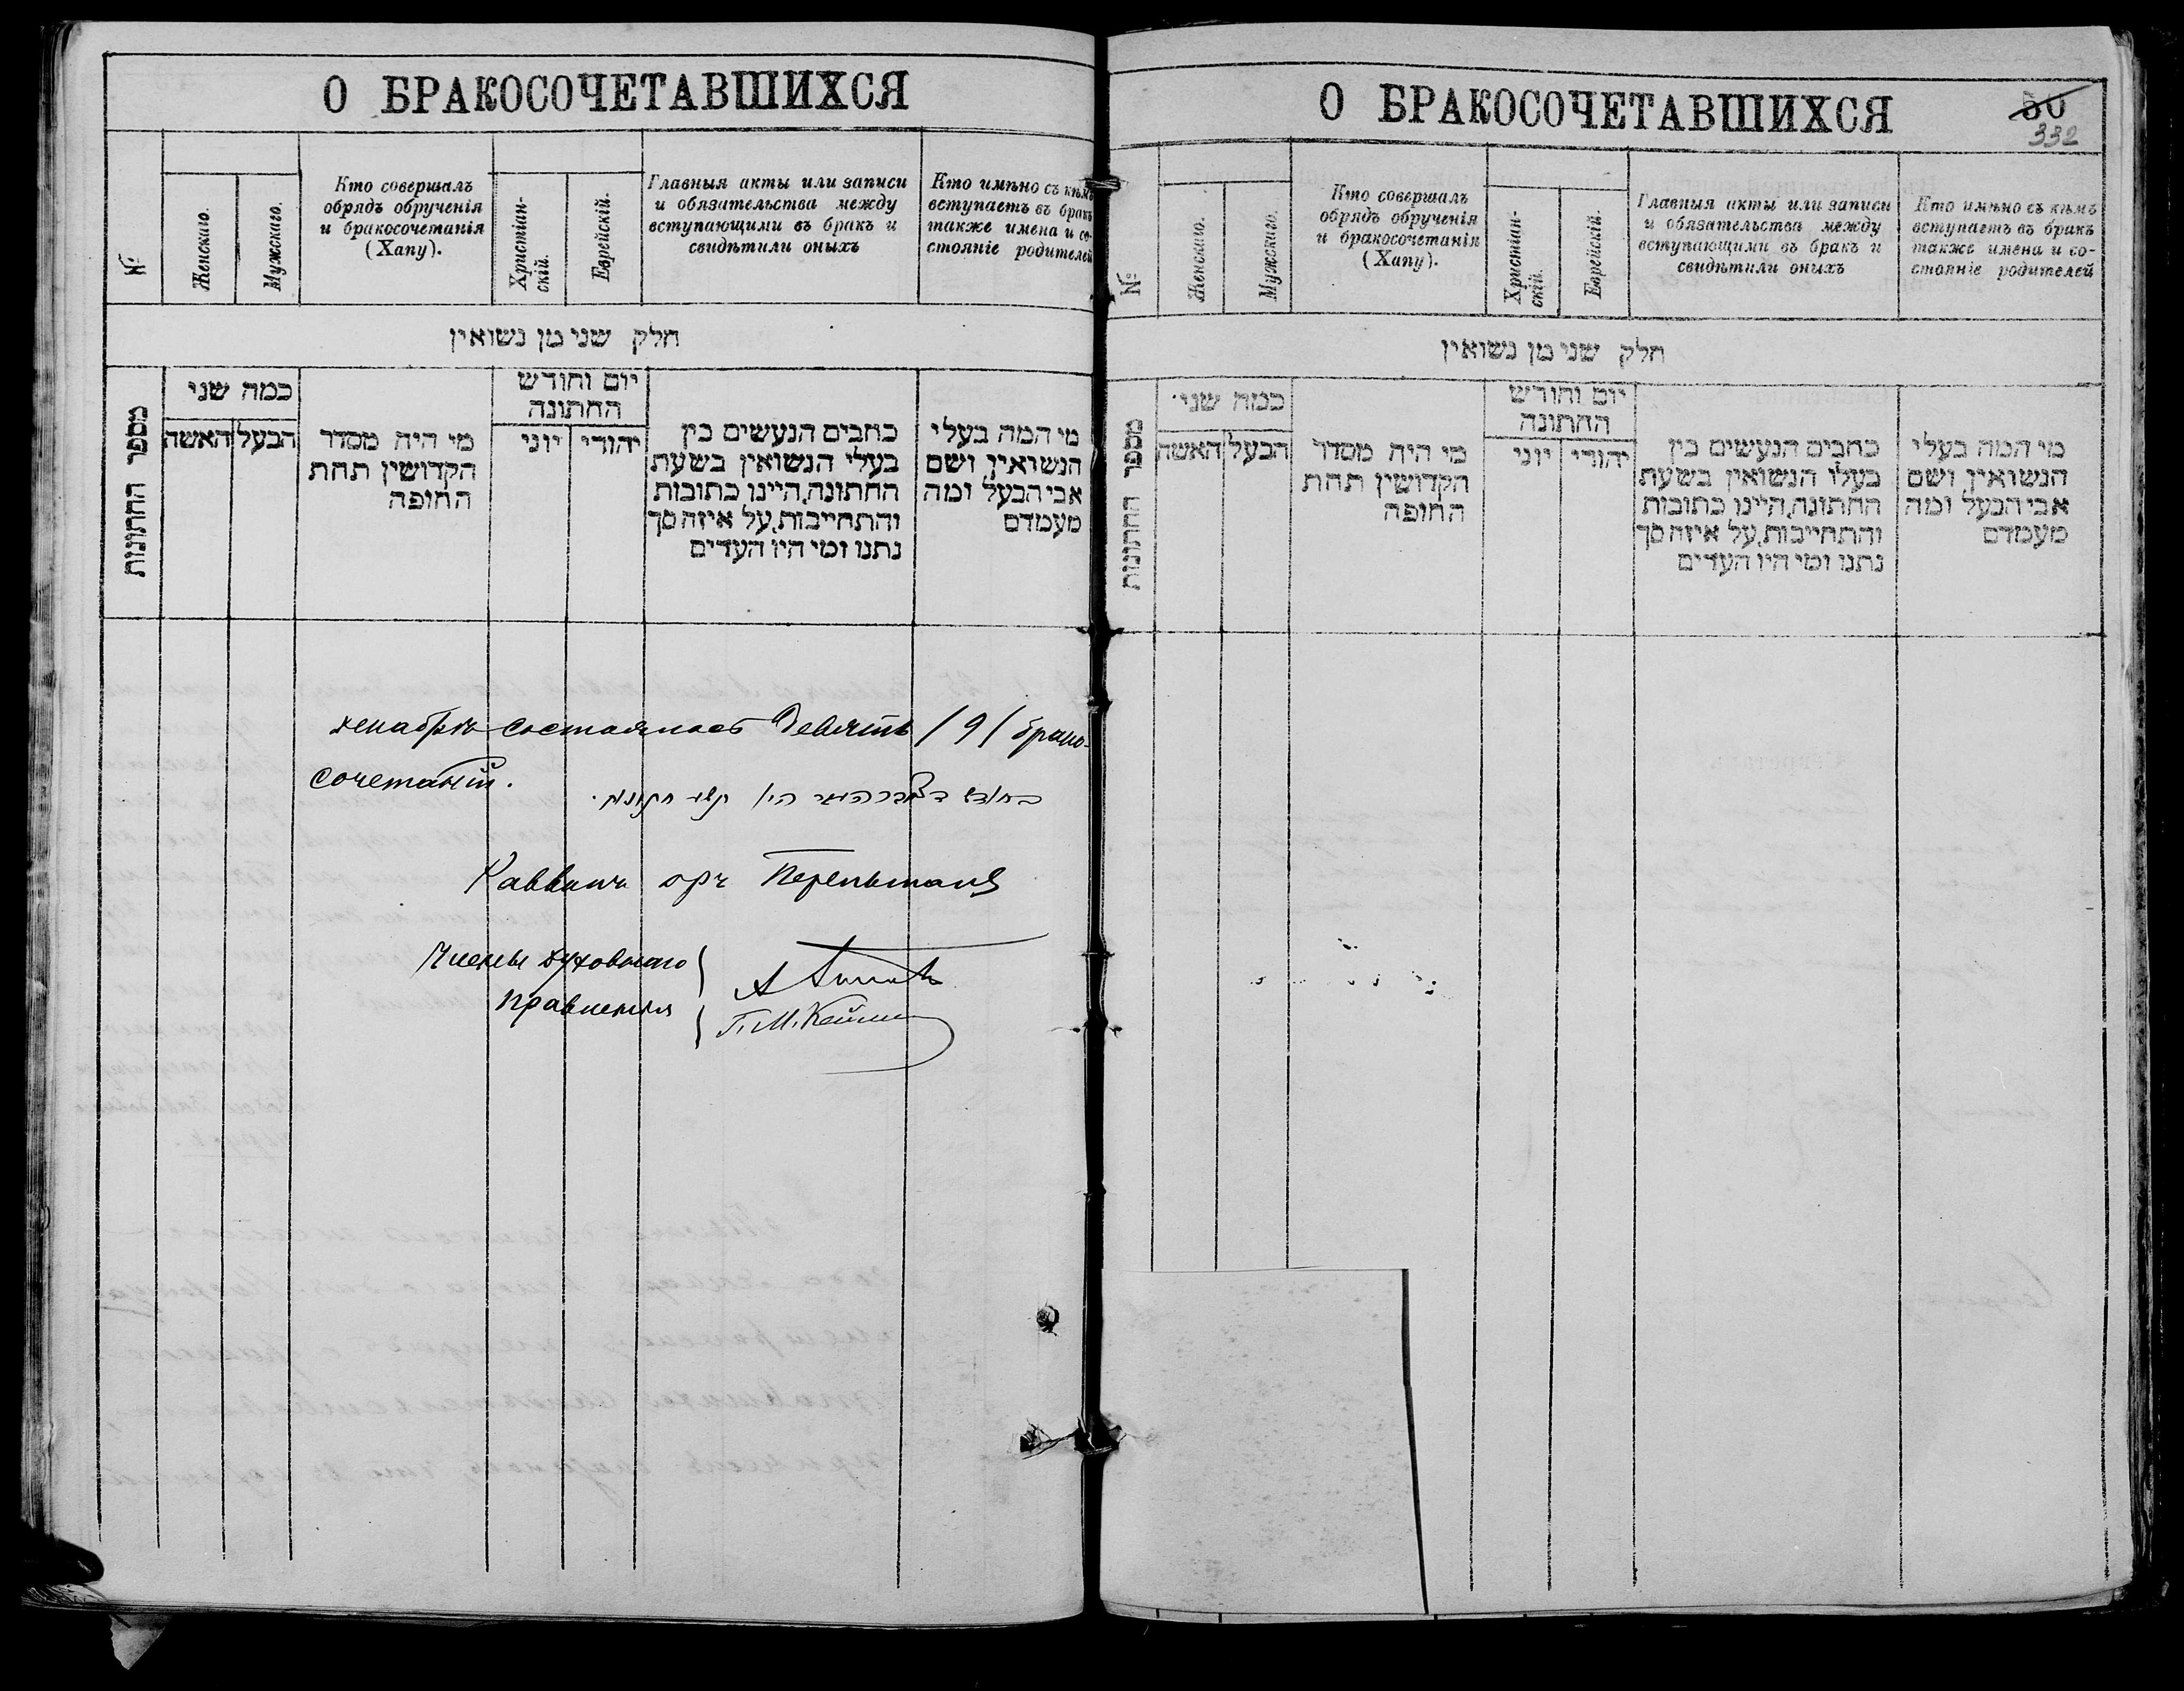 О БРАКОСОЧЕТАВШИХСЯ
№
Женскаго.
Мужскаго.
Кто совершалъ
обрядъ обрученія
и бракосочетанія
(Хапу).
Христіан-
скій.
Еврейскій.
Главныя акты или записи
и обязательства между
вступающими въ бракъ и
свидѣтили оныхъ
Кто имѣно съ кѣмъ
вступаетъ въ бракъ
также имена и со-
стояніе родителей
חלק שני מן נשואין
מספר החתונות
כמה שני
האשה
הבעל
מי היה מסדר
הקדושין תחת
החופה
יום וחודש
החתונה
יוני
יהודי
כתבים הנעשים בין
בעלי הנשואין בשעת
החתונה,היינו כתובות
והתחייבות,על איזה סך
נתנו ומי היו העדים
מי המה בעלי
הנשואין ושם
אבי הבעל ומה
מעמדם
декабрѣ состоялось девять /9/ брако-
сочетаній.
Раввинъ
Члены духовнаго
правленія
О БРАКОСОЧЕТАВШИХСЯ
50
332
№
Женскаго.
Мужскаго.
Кто совершалъ
обрядъ обрученія
и бракосочетанія
(Хапу).
Христіан-
скій.
Еврейскій.
Главныя акты или записи
и обязательства между
вступающими въ бракъ и
свидѣтили оныхъ
Кто имѣно съ кѣмъ
вступаетъ въ бракъ
также имена и со-
стояніе родителей
חלק שני מן נשואין
מספר החתונות
כמה שני
האשה
הבעל
מי היה מסדר
הקדושין תחת
החופה
יום וחודש
החתונה
יוני
יהודי
כתבים הנעשים בין
בעלי הנשואין בשעת
החתונה,היינו כתובות
והתחייבות,על איזה סך
נתנו ומי היו העדים
מי המה בעלי
הנשואין ושם
אבי הבעל ומה
מעמדם